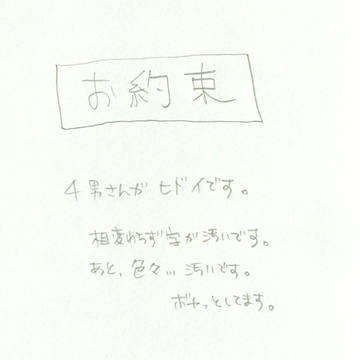 お約束
4男さんが ヒドイです。
相変わらず字が汚いです。
あと、色々… 汚いです。
ボヤっとしてます。